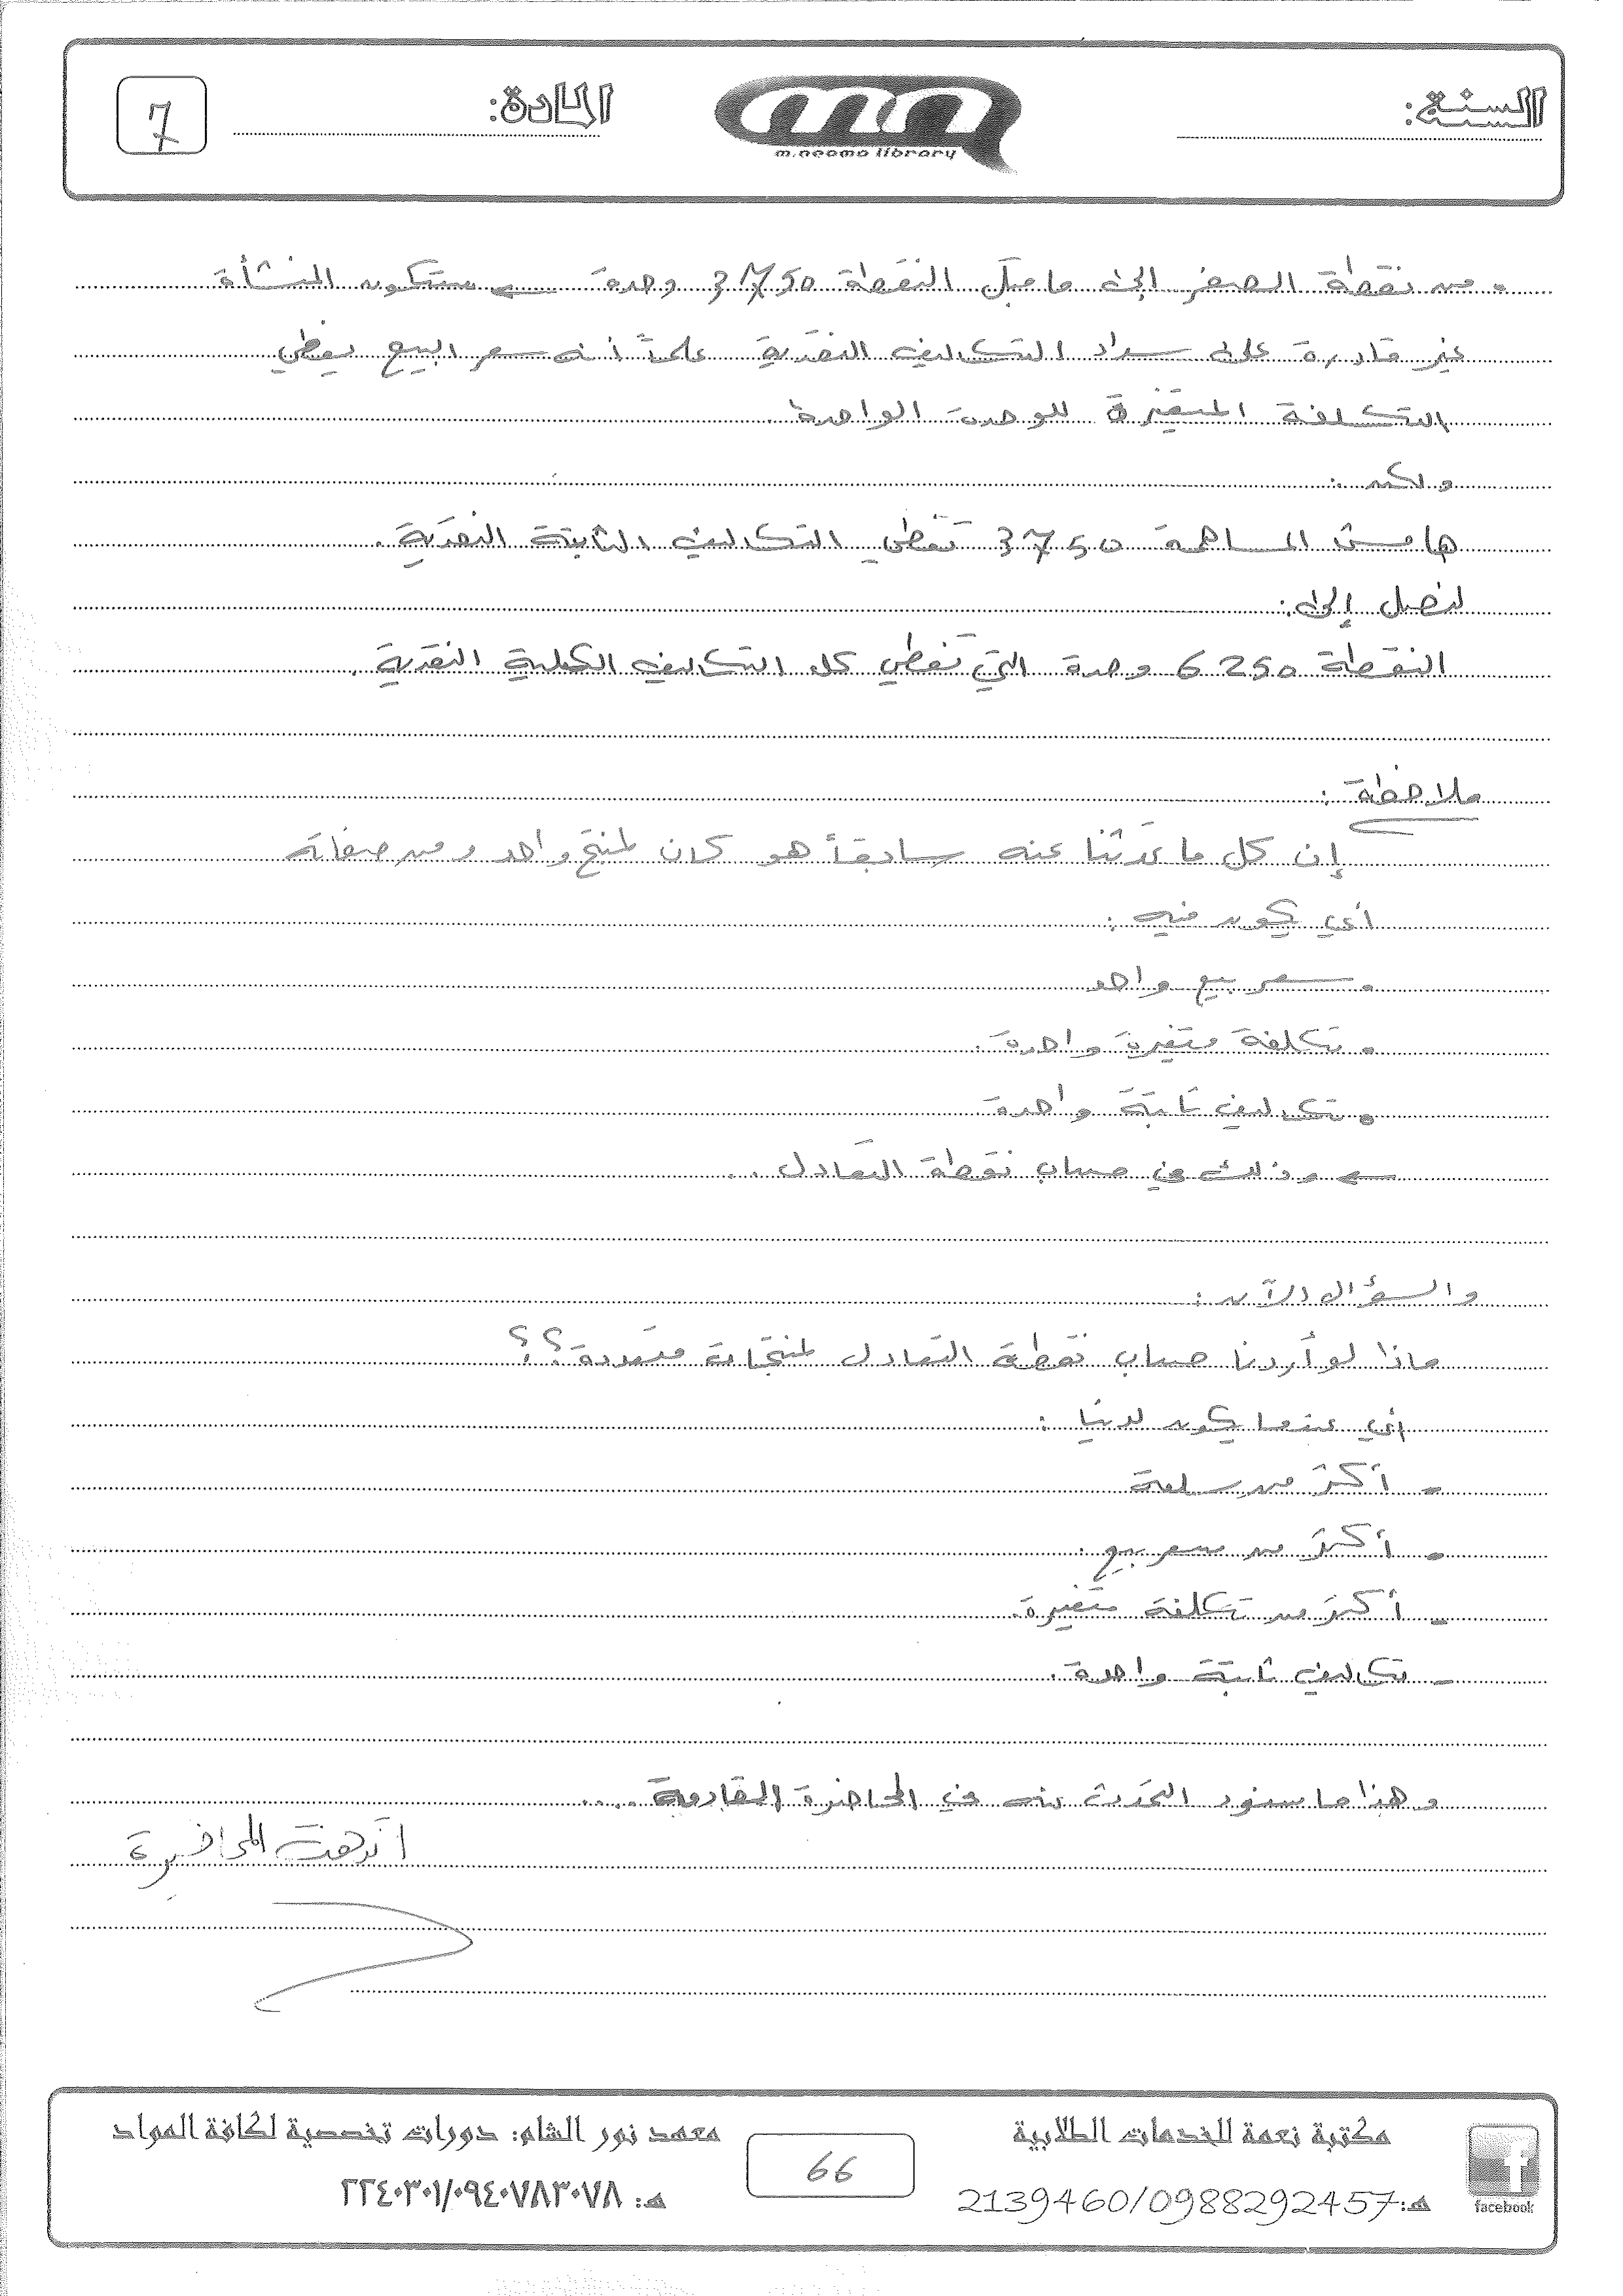 السنة:
m.neama library
المادة:
7
• من نقطة الصفر إلى ما قبل النقطة 3750 وحدة ← ستكون المنشأة
غير قادرة على سداد التكاليف النقدية علماً أنه سعر البيع يغطي
التكلفة المتغيرة للوحدة الواحدة.
ولكن:
هامش المساهمة 3750 تغطي التكاليف الثابتة النقدية.
لنصل إلى:
النقطة 6250 وحدة التي تغطي كل التكاليف الكلية النقدية.
ملاحظة:
إن كل ما تحدثنا عنه سابقاً هو كان لمنتج واحد ومن صفاته
أي يكون فيه:
• سعر بيع واحد
• تكلفة متغيرة واحدة.
• تكاليف ثابتة واحدة
← وذلك في حساب نقطة التعادل...
والسؤال الآن:
ماذا لو أردنا حساب نقطة التعادل لمنتجات متعددة؟؟
أي عندما يكون لدينا:
- أكثر من سلعة
- أكثر من سعر بيع.
- أكثر من تكلفة متغيرة.
- تكاليف ثابتة واحدة.
وهذا ما سنود التحدث عنه في المحاضرة القادمة....
انتهت المحاضرة
مكتبة نعمة للخدمات الطلابية
هـ: 2139460/0988292457
facebook
66
معهد نور الشام: دورات تخصصية لكافة المواد
هـ: ٢٢٤٠٣٠١/٠٩٤٠٧٨٣٠٧٨